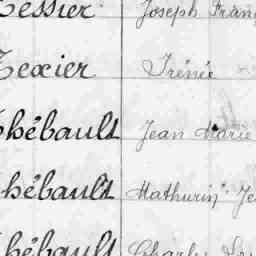 Tessier Joseph Franç
Texier Irénée
Thébault Jean Marie
Thébault Mathurin Je
Thébault Charles